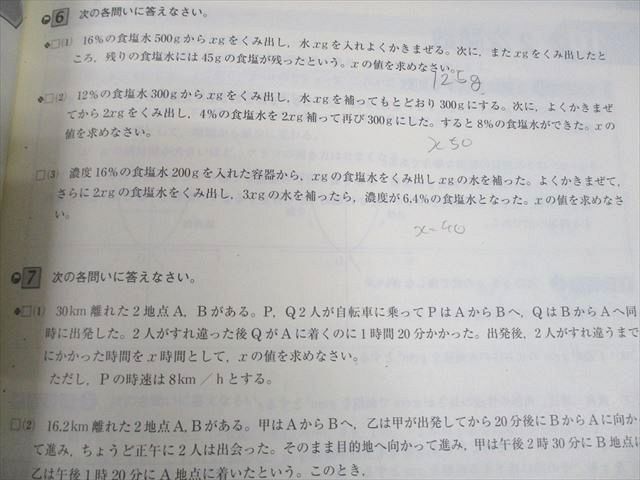 6 次の各問いに答えなさい。
(1) 16%の食塩水500gからxgをくみ出し，水xgを入れよくかきまぜる。次に，またxgをくみ出したと
ころ，残りの食塩水には45gの食塩が残ったという。xの値を求めなさい。
125g
(2) 12%の食塩水300gからxgをくみ出し，水xgを補ってもとどおり300gにする。次に，よくかきまぜ
てから2xgをくみ出し，4%の食塩水を2xg補って再び300gにした。すると8%の食塩水ができた。xの
値を求めなさい。
x 50
(3) 濃度16%の食塩水200gを入れた容器から，xgの食塩水をくみ出しxgの水を補った。よくかきまぜて，
さらに2xgの食塩水をくみ出し，3xgの水を補ったら，濃度が6.4%の食塩水となった。xの値を求めなさ
い。
x=40
7 次の各問いに答えなさい。
(1) 30km離れた2地点A，Bがある。P，Q2人が自転車に乗ってPはAからBへ，QはBからAへ同
時に出発した。2人がすれ違った後QがAに着くのに1時間20分かかった。出発後，2人がすれ違うまで
にかかった時間をx時間として，xの値を求めなさい。
ただし，Pの時速は8km／hとする。
(2) 16.2km離れた2地点A,Bがある。甲はAからBへ，乙は甲が出発してから20分後にBからAに向か
て進み，ちょうど正午に2人は出会った。そのまま目的地へ向かって進み，甲は午後2時30分にB地点に
乙は午後1時20分にA地点に着いたという。このとき，